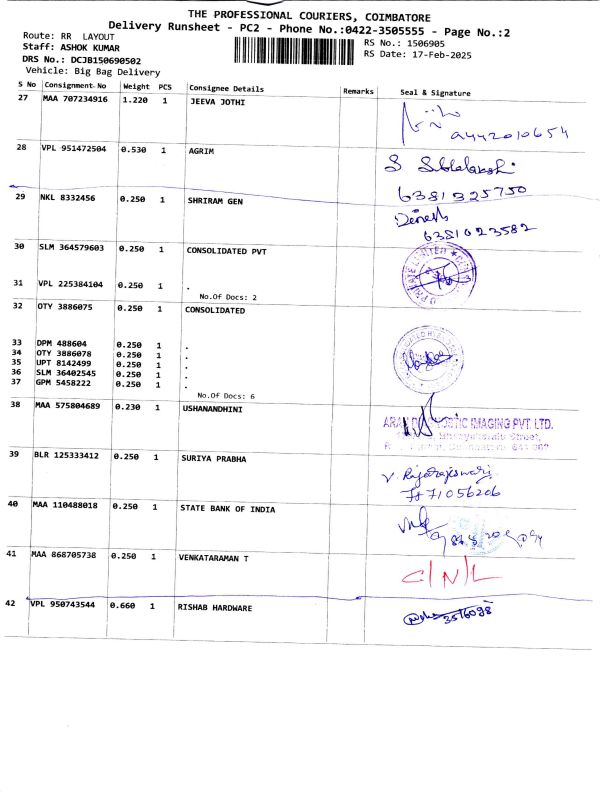 THE PROFESSIONAL COURIERS, COIMBATORE
Delivery Runsheet - PC2 - Phone No.:0422-3505555 - Page No.:2
Route: RR LAYOUT
RS No.: 1506905
Staff: ASHOK KUMAR
RS Date: 17-Feb-2025
DRS No.: DCJB150690502
Vehicle: Big Bag Delivery
S No Consignment No Weight PCS Consignee Details Remarks Seal & Signature
27 MAA 707234916 1.220 1 JEEVA JOTHI
9442010654
28 VPL 951472504 0.530 1 AGRIM
6381325750
29 NKL 8332456 0.250 1 SHRIRAM GEN
Dinesh
6381023582
30 SLM 364579603 0.250 1 CONSOLIDATED PVT
31 VPL 225384104 0.250 1 .
No.Of Docs: 2
32 OTY 3886075 0.250 1 CONSOLIDATED
33 DPM 488604 0.250 1 .
34 OTY 3886078 0.250 1 .
35 UPT 8142499 0.250 1 .
36 SLM 36402545 0.250 1 .
37 GPM 5458222 0.250 1 .
No.Of Docs: 6
38 MAA 575804689 0.230 1 USHANANDHINI
IMAGING PVT. LTD.
39 BLR 125333412 0.250 1 SURIYA PRABHA
V Rajarajeswari
40 MAA 110488018 0.250 1 STATE BANK OF INDIA
41 MAA 868705738 0.250 1 VENKATARAMAN T
C/N/L
42 VPL 950743544 0.660 1 RISHAB HARDWARE
3516098